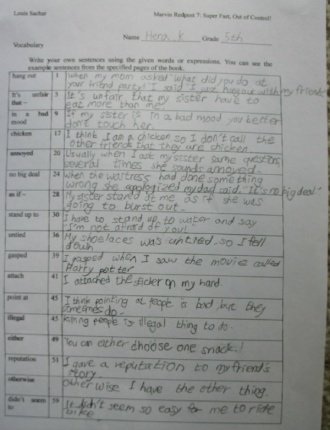 Louis Sachar
Marvin Redpost 7: Super Fast, Out of Control!
Name Hora. K Grade 5th
Vocabulary
Write your own sentences using the given words or expressions. You can see the
example sentences from the specified pages of the book.
hang out 1 When my mom asked "What did you do at
your friend party" I said "I just hangout with my friends
It's unfair that – 3 It's unfair that my sister have to
eat more than me.
in a bad mood 9 If my sister is in a bad mood you better
don't touch her.
chicken 17 I think I am a chicken so I don't call the
other friends that they are chicken
annoyed 20 Usually when I ask my sister same question
several times she sounds annoyed
no big deal 24 When the waitress had done something
wrong she apologized my dad said "it's no big deal"
as if – My sister stared at me as it she was
going to burst out.
stand up to 30 I have to stand up to water and say
I'm not afraid of you!
untied 36 My shoelaces was untied, so I fell
down
gasped 39 I gasped when I saw the movies called
Harry potter
attach 41 I attached the sticker on my hand.
point at 45 I think pointing at people is bad but they
sometimes do.
illegal 45 killing people is illegal thing to do.
either 49 You can either choose one snack!
reputation 51 I gave a reputation to my friend's
story.
otherwise Other wise I have the other thing.
didn't seem to 59 It didn't seem so easy for me to ride